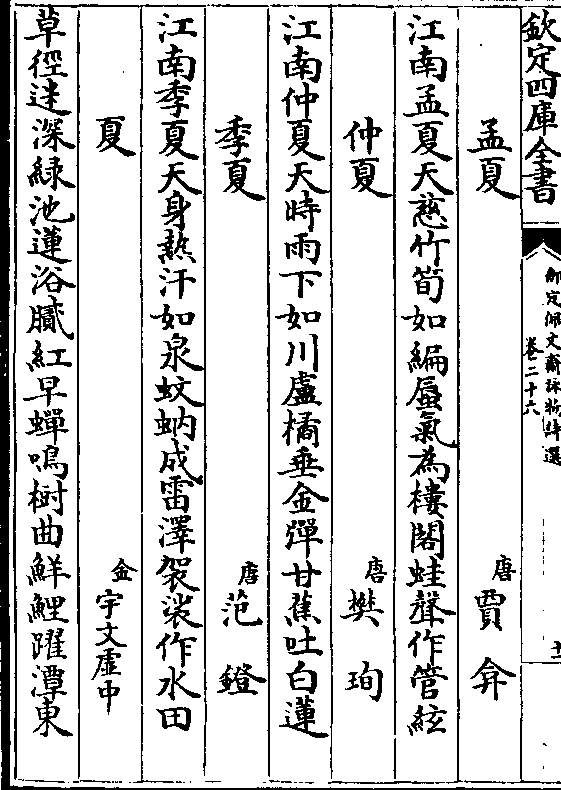 欽定四庫全書
御定佩文齋詠物詩選
卷二十六
孟夏 唐 賈弇
江南孟夏天慈竹筍如編蜃氣為樓閣蛙聲作管絃
仲夏 唐 樊珣
江南仲夏天時雨下如川盧橘垂金彈甘蕉吐白蓮
季夏 唐 范鐙
江南季夏天身熱汗如泉蚊蚋成雷澤袈裟作水田
夏 金 宇文虛中
草徑迷深綠池蓮浴膩紅早蟬鳴樹曲鮮鯉躍潭東